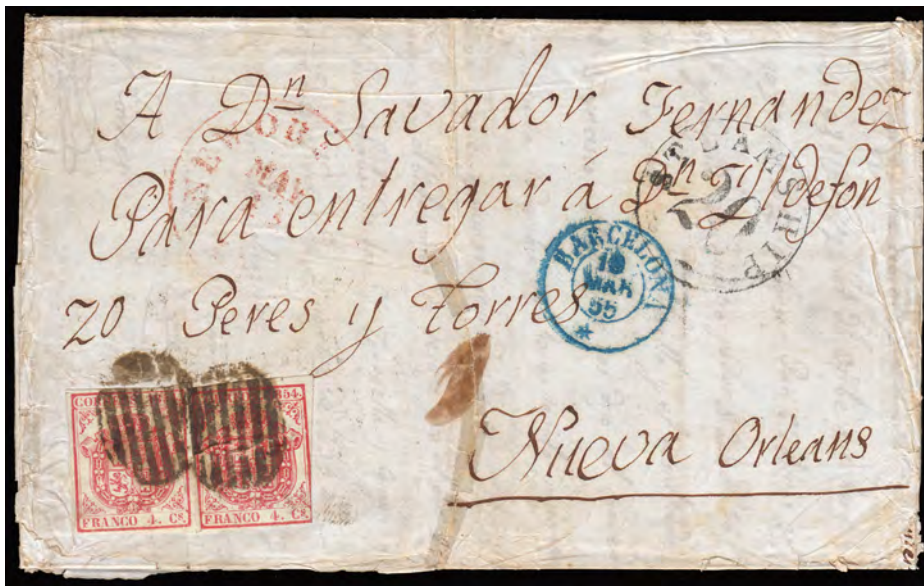 A Dn Savador Fernandez
Para entregar á Dn Yldefon
zo Peres y Torres
Nueva Orleans
STEAMSHIP
20
BARCELONA
MAR
55
MAY
FRANCO 4. Cs.
FRANCO 4. Cs.